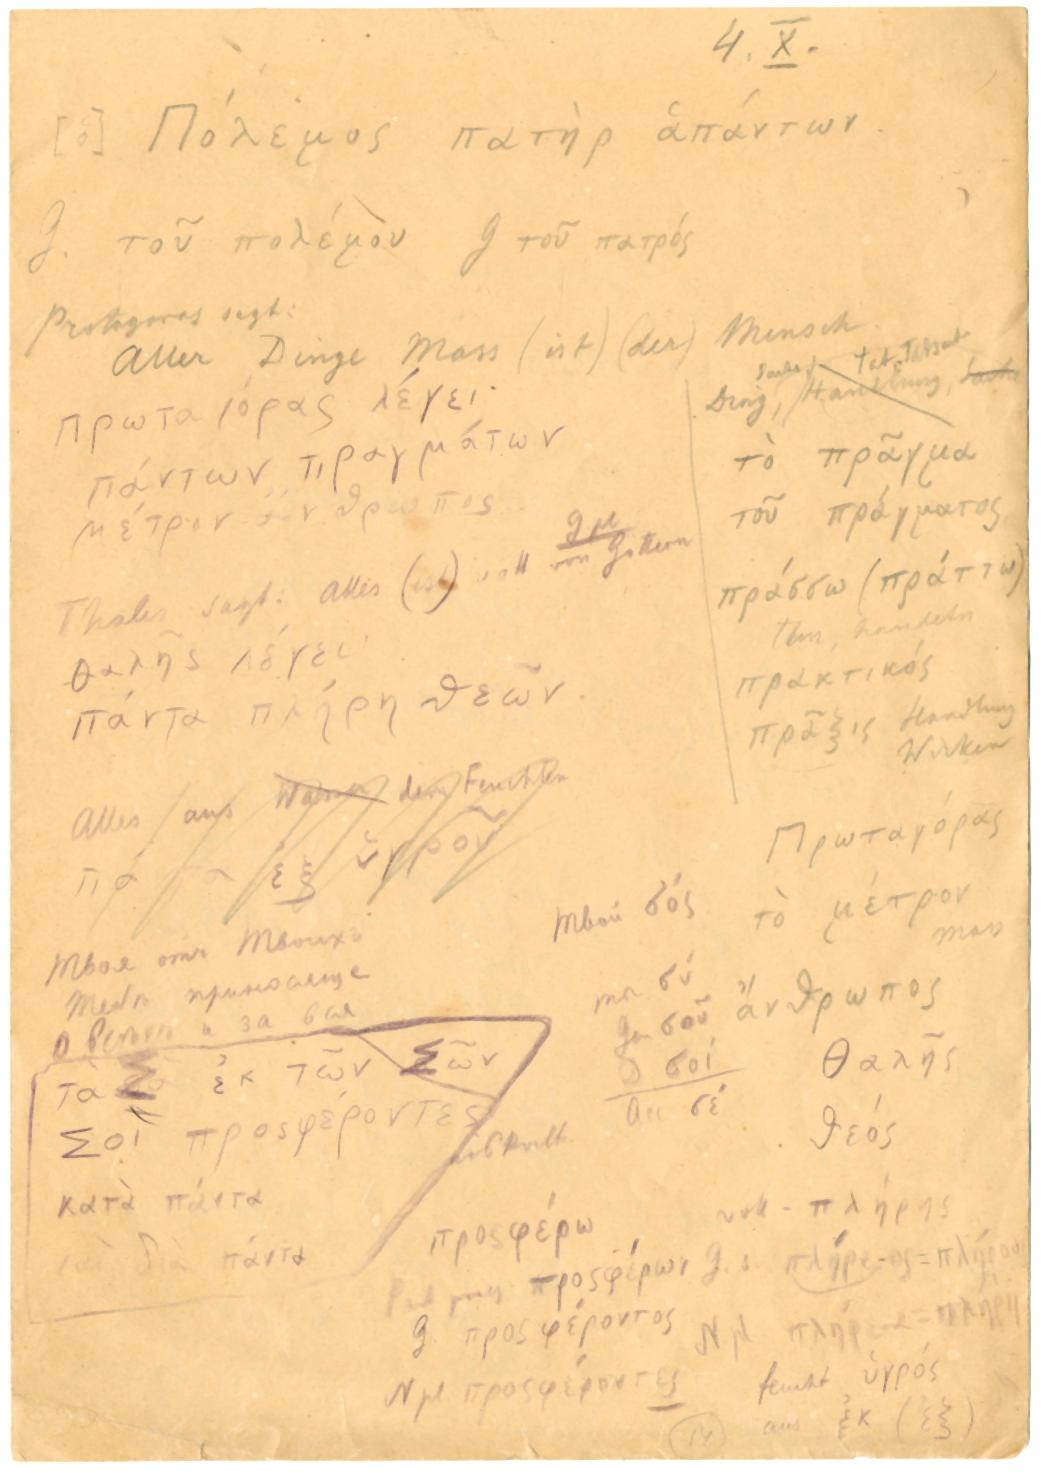 4. X.
[ὁ] Πόλεμος πατὴρ ἁπάντων.
G. τοῦ πολέμου G τοῦ πατρός
Protagoras sagt:
Aller Dinge Mass (ist) (der) Mensch.
Πρωταγόρας λέγει·
πάντων πραγμάτων
μέτρον ἄνθρωπος
Thales sagt: Alles (ist) voll von Göttern
G pl
Θαλῆς λέγει·
πάντα πλήρη θεῶν.
Alles aus Wasser dem Feuchten
ἐξ ὑγροῦ
Tat, Tatsache
Ding, Handlung, Sache
τὸ πρᾶγμα
τοῦ πράγματος
πράσσω (πράττω)
tun, handeln
πρακτικός
πρᾶξις Handlung
Wirken
Πρωταγόρας
τὸ μέτρον
Mass
ἄνθρωπος
Θαλῆς
θεός
твой σός
σύ
Gen σοῦ
D σοί
Acc σέ
Твоя отъ Твоихъ
Тебѣ приносяще
о всѣхъ и за вся
τὰ Σὰ ἐκ τῶν Σῶν
Σοὶ προσφέροντες
κατὰ πάντα
καὶ διὰ πάντα
προσφέρω
προσφέρων
G. προσφέροντος
N pl προσφέροντες
voll - πλήρης
G. s. πλήρε-ος=πλήρους
N pl πλήρεα=πλήρη
feucht ὑγρός
aus ἐκ (ἐξ)
14